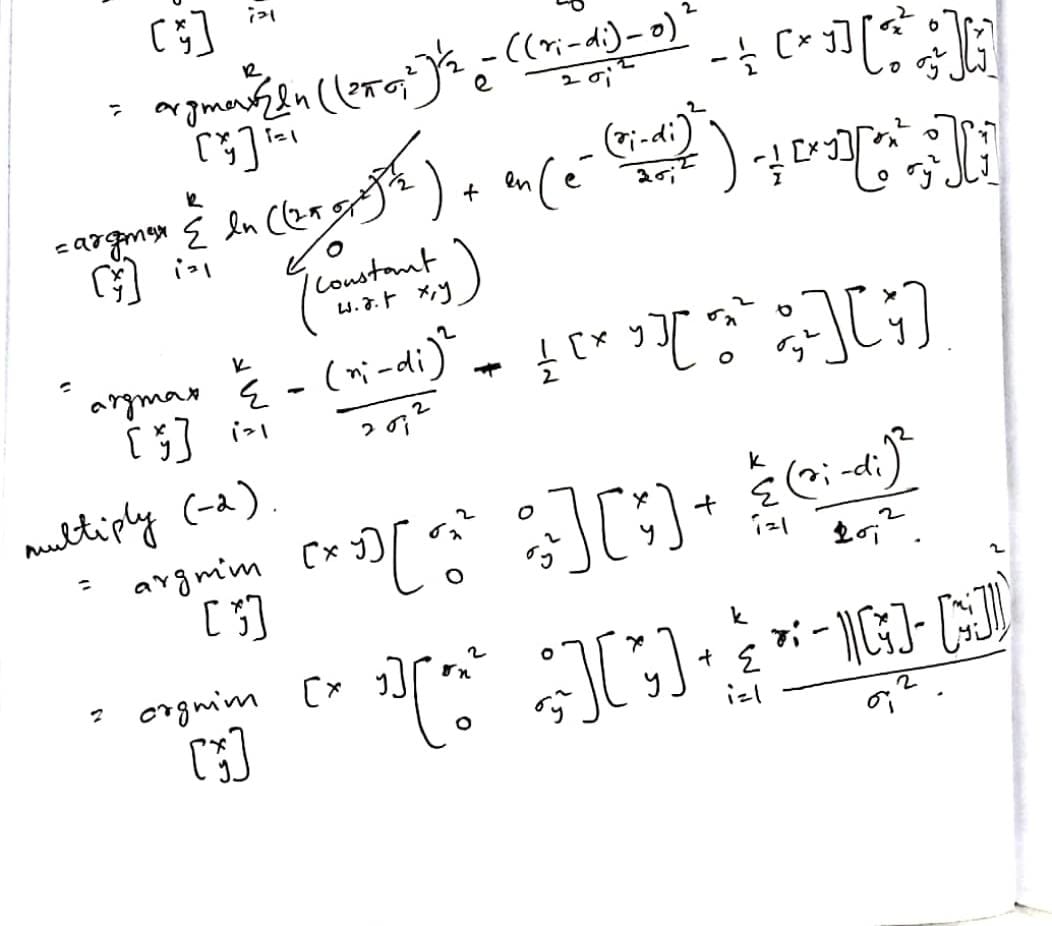 [x y] i=1
= argmax Σ ln((2πσi²)^½ e^-((ri-di)-0)²/2σi² - ½ [x y][σx² 0 0 σy²][x y]
[x y] i=1 k
= argmax Σ ln((2πσi²)^½) + ln(e^-(ri-di)²/2σi²) - ½ [x y][σx² 0 0 σy²][x y]
[x y] i=1 k
0
(constant w.r.t x,y)
= argmax Σ - (ri-di)²/2σi² - ½ [x y][σx² 0 0 σy²][x y]
[x y] i=1 k
multiply (-2).
= argmin [x y][σx² 0 0 σy²][x y] + Σ (ri-di)²/σi².
[x y] i=1 k
= argmin [x y][σx² 0 0 σy²][x y] + Σ ri - ||[x y] - [xi yi]||)²/σi².
[x y] i=1 k